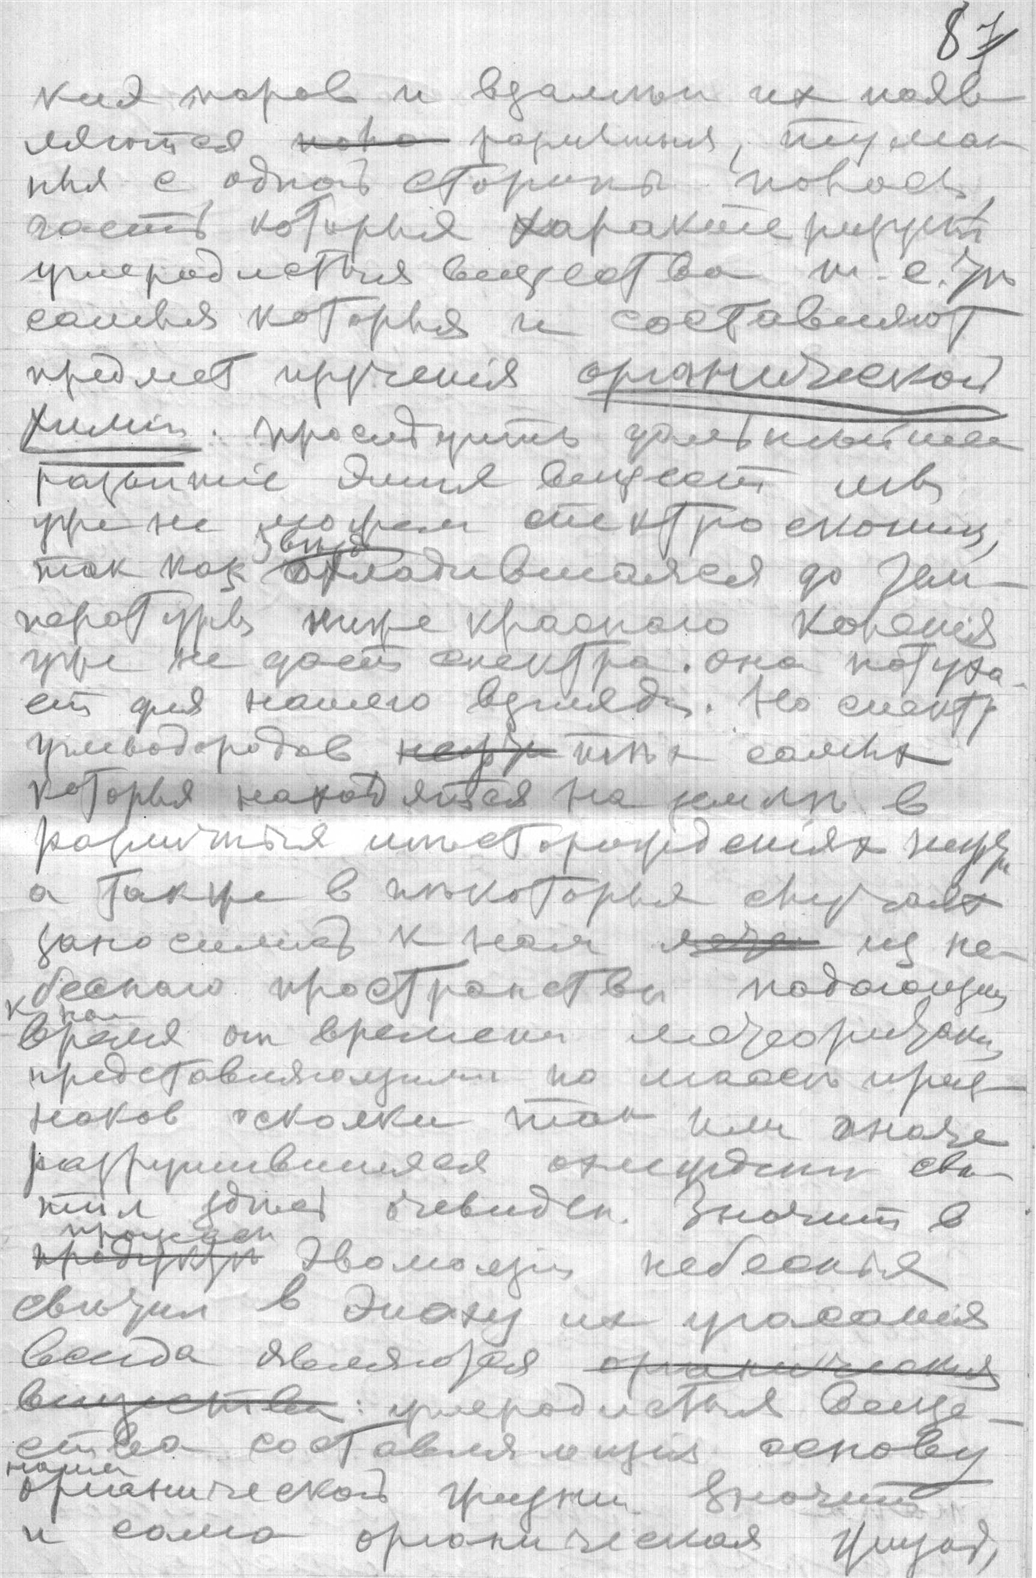 87
ких паров и вдалыи их появ
ляются ново различныя, туман
ныя с одной стороны полосы,
часть которыя характеризуют
углеродистыя вещества т. е. те
самыя которыя и составляют
предмет изучения органической
химіи. Проследить дальнейшее
развитіе этих веществ мы
уже не можем спектроскопом,
звезда
так как охладившаяся до тем-
пературы ниже краснаго каленія
уже не дает спектра. Она потуха-
ет для нашего взгляда. Но спектр
углеводородов тех самых
которыя находятся на земле в
различных месторожденіях нефти
а также в некоторых случаях
заносились к нам из не-
беснаго пространства падающими
к нам
время от времени метеоритами,
представляющими по массе приз-
наков осколки так или иначе
разрушившихся охлажденных све-
тил здесь очевиден. Значит в
процессе
продукте эволюціи небесных
светил в эпоху их угасанія
всегда являются органическія
вещества: углеродистыя веще-
ства составляющія основу
нашей
органической жизни. Значит
и сама органическая жизнь,